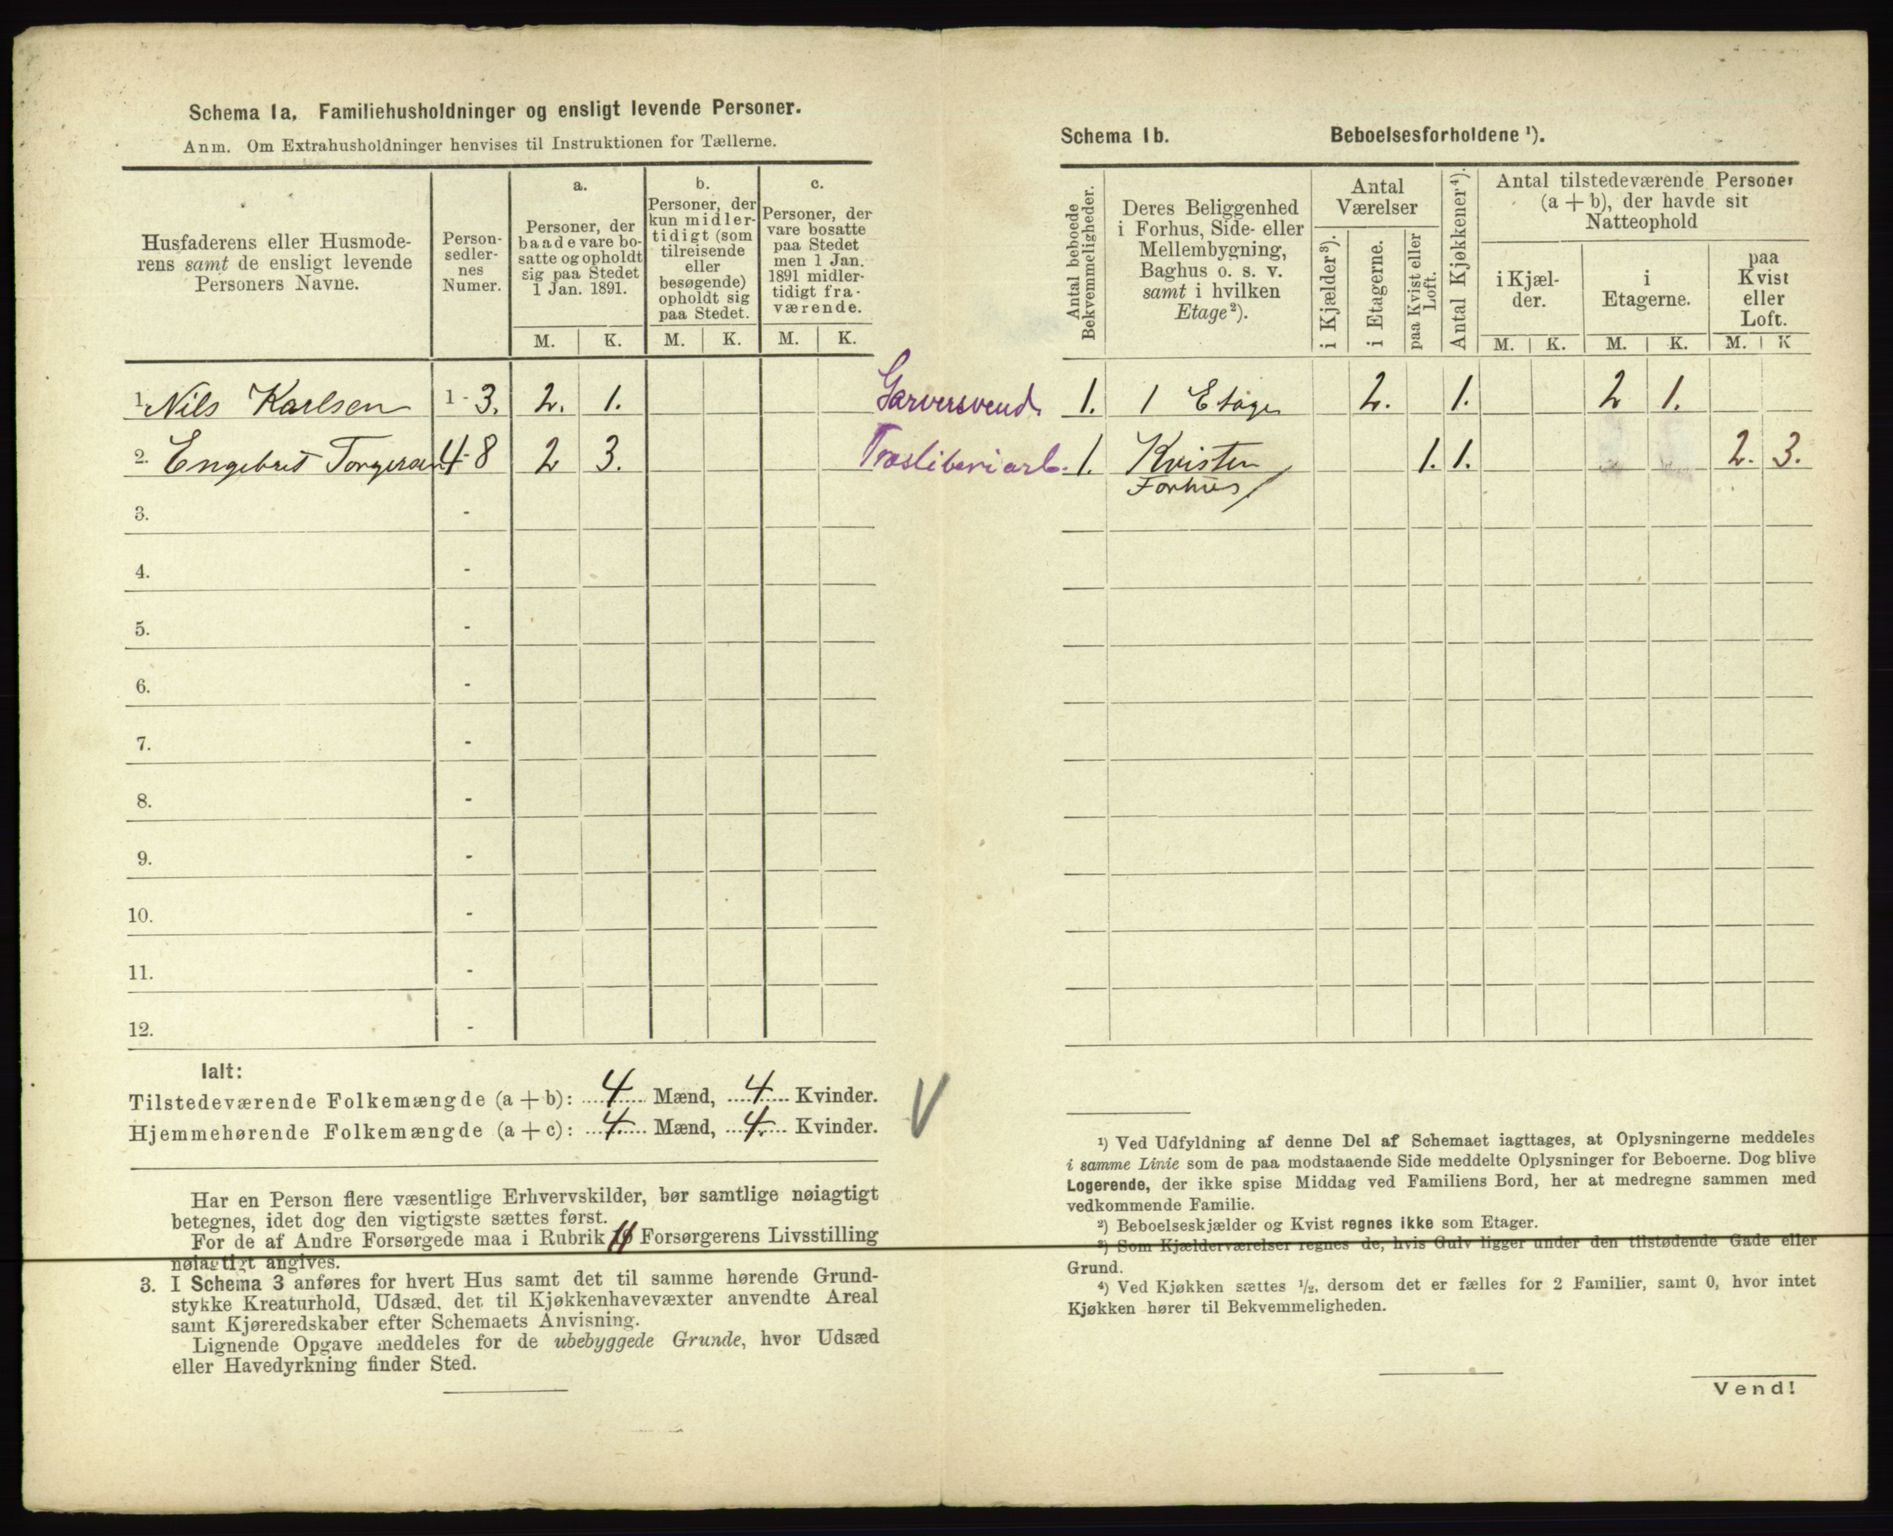 Schema 1a. Familiehusholdninger og ensligt levende Personer.
Anm. Om Extrahusholdninger henvises til Instruktionen for Tællerne.
Husfaderens eller Husmode-
rens samt de ensligt levende
Personers Navne.
Person-
sedler-
nes
Numer.
a.
Personer, der
baade vare bo-
satte og opholdt
sig paa Stedet
1 Jan. 1891.
b.
Personer, der
kun midler-
tidigt (som
tilreisende
eller
besøgende)
opholdt sig
paa Stedet.
c.
Personer, der
vare bosatte
paa Stedet
men 1 Jan.
1891 midler-
tidigt fra-
værende.
M. K. M. K. M. K.
1. Nils Karlsen 1 - 3. 2. 1. Garversvend
2. Engebret Torgersen 4 - 8 2 3.
3. -
4. -
5. -
6. -
7. -
8. -
9. -
10. -
11. -
12. -
Ialt:
Tilstedeværende Folkemængde (a + b): 4 Mænd, 4 Kvinder.
Hjemmehørende Folkemængde (a + c): 4 Mænd, 4 Kvinder.
Har en Person flere væsentlige Erhvervskilder, bør samtlige nøiagtigt
betegnes, idet dog den vigtigste sættes først.
For de af Andre Forsørgede maa i Rubrik Forsørgerens Livsstilling
nøiagtigt angives.
3. I Schema 3 anføres for hvert Hus samt det til samme hørende Grund-
stykke Kreaturhold, Udsæd, det til Kjøkkenhavevæxter anvendte Areal
samt Kjøreredskaber efter Schemaets Anvisning.
Lignende Opgave meddeles for de ubebyggede Grunde, hvor Udsæd
eller Havedyrkning finder Sted.
Schema 1b. Beboelsesforholdene ¹).
Antal beboede
Bekvemmeligheder.
Deres Beliggenhed
i Forhus, Side- eller
Mellembygning,
Baghus o. s. v.
samt i hvilken
Etage ²).
Antal
Værelser
i Kjælder ³).
i Etagerne.
paa Kvist eller
Loft.
Antal Kjøkkener ⁴).
Antal tilstedeværende Personer
(a + b), der havde sit
Natteophold
i Kjæl-
der.
i
Etagerne.
paa
Kvist
eller
Loft.
M. K. M. K. M. K
1. 1 Etage 2. 1. 2 1.
1. Kvisten 1. 1. 2. 3.
Forhus
¹) Ved Udfyldning af denne Del af Schemaet iagttages, at Oplysningerne meddeles
i samme Linie som de paa modstaaende Side meddelte Oplysninger for Beboerne. Dog blive
Logerende, der ikke spise Middag ved Familiens Bord, her at medregne sammen med
vedkommende Familie.
²) Beboelseskjælder og Kvist regnes ikke som Etager.
³) Som Kjælderværelser regnes de, hvis Gulv ligger under den tilstødende Gade eller
Grund.
⁴) Ved Kjøkken sættes ½, dersom det er fælles for 2 Familier, samt 0, hvor intet
Kjøkken hører til Bekvemmeligheden.
Vend!